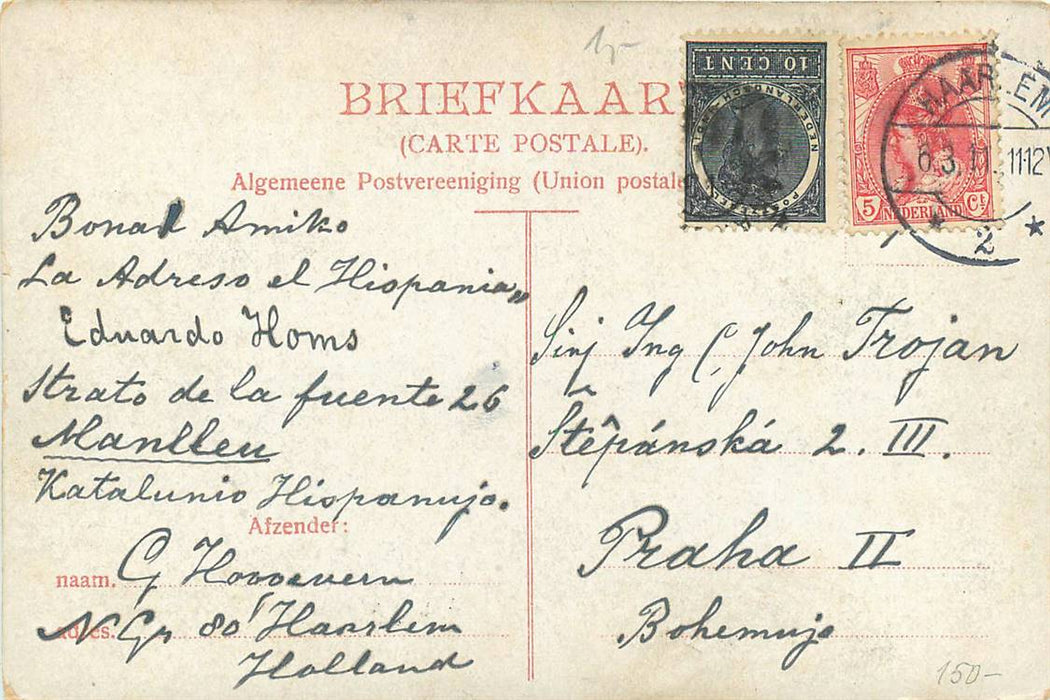 1,-
BRIEFKAAR
(CARTE POSTALE).
Algemeene Postvereeniging (Union postale
10 CENT
NEDERLANDSCH
5 Ct
NEDERLAND
HAARLEM
6.3.11. 11-12V
2
Bona Amiko
La Adreso el Hispania„
Eduardo Homs
Strato de la fuente 26
Manlleu
Katalunio Hispanujo.
Afzender:
naam. G
adres. N. Gr 80 Haarlem
Holland
Sinj Ing C. John Trojan
Štêpánská 2. III.
Praha II
Bohemujo
150-